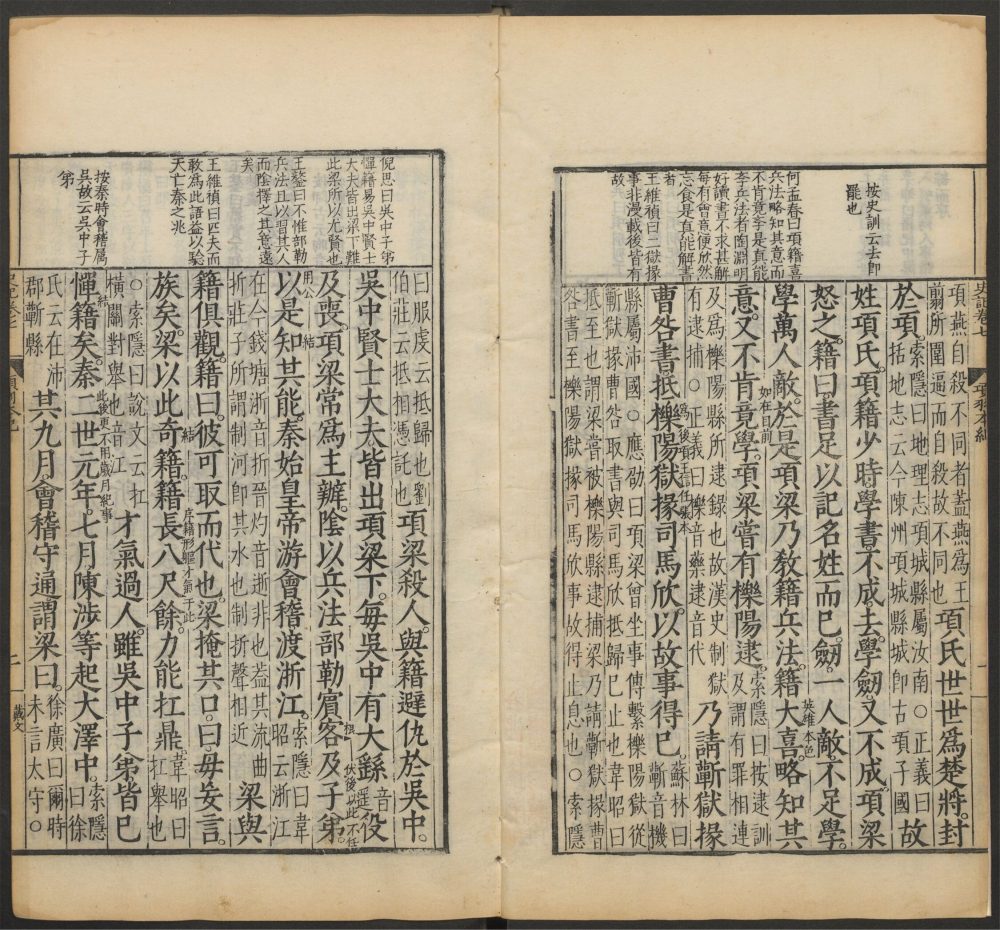 按史訓云去即
罷也
何孟春曰項籍喜
兵法略知其意而
不肯竟學是真能
學兵法者陶淵明
好讀書不求甚解
每有會意便欣然
忘食是直能解書
者
王維禎曰二獄掾
事非漫載後皆有
故
史記卷七
項羽本紀
項燕自殺不同者蓋燕爲王
翦所圍逼而自殺故不同也
項氏世世爲楚將封
於項
索隱曰地理志項城縣屬汝南○正義曰
括地志云今陳州項城縣城即古項子國
故
姓項氏項籍少時學書不成去學劒又不成項梁
怒之籍曰書足以記名姓而已劒一人敵不足學
英雄本色
學萬人敵於是項梁乃教籍兵法籍大喜略知其
如在目前
意又不肯竟學項梁嘗有櫟陽逮
索隱曰按逮訓
及謂有罪相連
及爲櫟陽縣所逮錄也故漢史制獄
有逮捕○正義曰櫟音藥逮音代
乃請蘄獄掾
爲後霸王任用張本
曹咎書抵櫟陽獄掾司馬欣以故事得已
蘇林曰
蘄音機
縣屬沛國○應劭曰項梁曾坐事傳繫櫟陽獄從
蘄獄掾曹咎取書與司馬欣抵歸已止也韋昭曰
抵至也謂梁嘗被櫟陽縣逮捕梁乃請蘄獄掾曹
咎書至櫟陽獄掾司馬欣事故得止息也○索隱
倪思曰吳中子弟
憚籍易吳中賢士
大夫皆出梁下難
此梁所以尤賢也
王鏊曰不惟部勒
兵法且以習其人
而陰擇之其意遠
矣
王維禎曰匹夫而
敢爲此語益以驗
天亡秦之兆
按秦時會稽屬
吳故云吳中子
弟
曰服虔云抵歸也劉
伯莊云抵相憑託也
項梁殺人與籍避仇於吳中
吳中賢士大夫皆出項梁下每吳中有大繇役
及喪項梁常爲主辦陰以兵法部勒賓客及子弟
伏後以此不任
用公
結
以是知其能秦始皇帝游會稽渡浙江
索隱曰韋
昭云浙江
在今錢塘浙音折晉灼音逝非也蓋其流曲
折莊子所謂制河即其水也制折聲相近
梁與
籍俱觀籍曰彼可取而代也梁掩其口曰毋妄言
結
序籍形軀才氣于此
族矣梁以此奇籍籍長八尺餘力能扛鼎
韋昭曰
扛舉也
○索隱曰說文云扛
橫關對舉也音江
才氣過人雖吳中子弟皆已
結
此後更不用歲月紀事
憚籍矣秦二世元年七月陳涉等起大澤中
索隱
曰徐
氏云在沛
郡蘄縣
其九月會稽守通謂梁曰
徐廣曰爾時
未言太守○
二
戴文